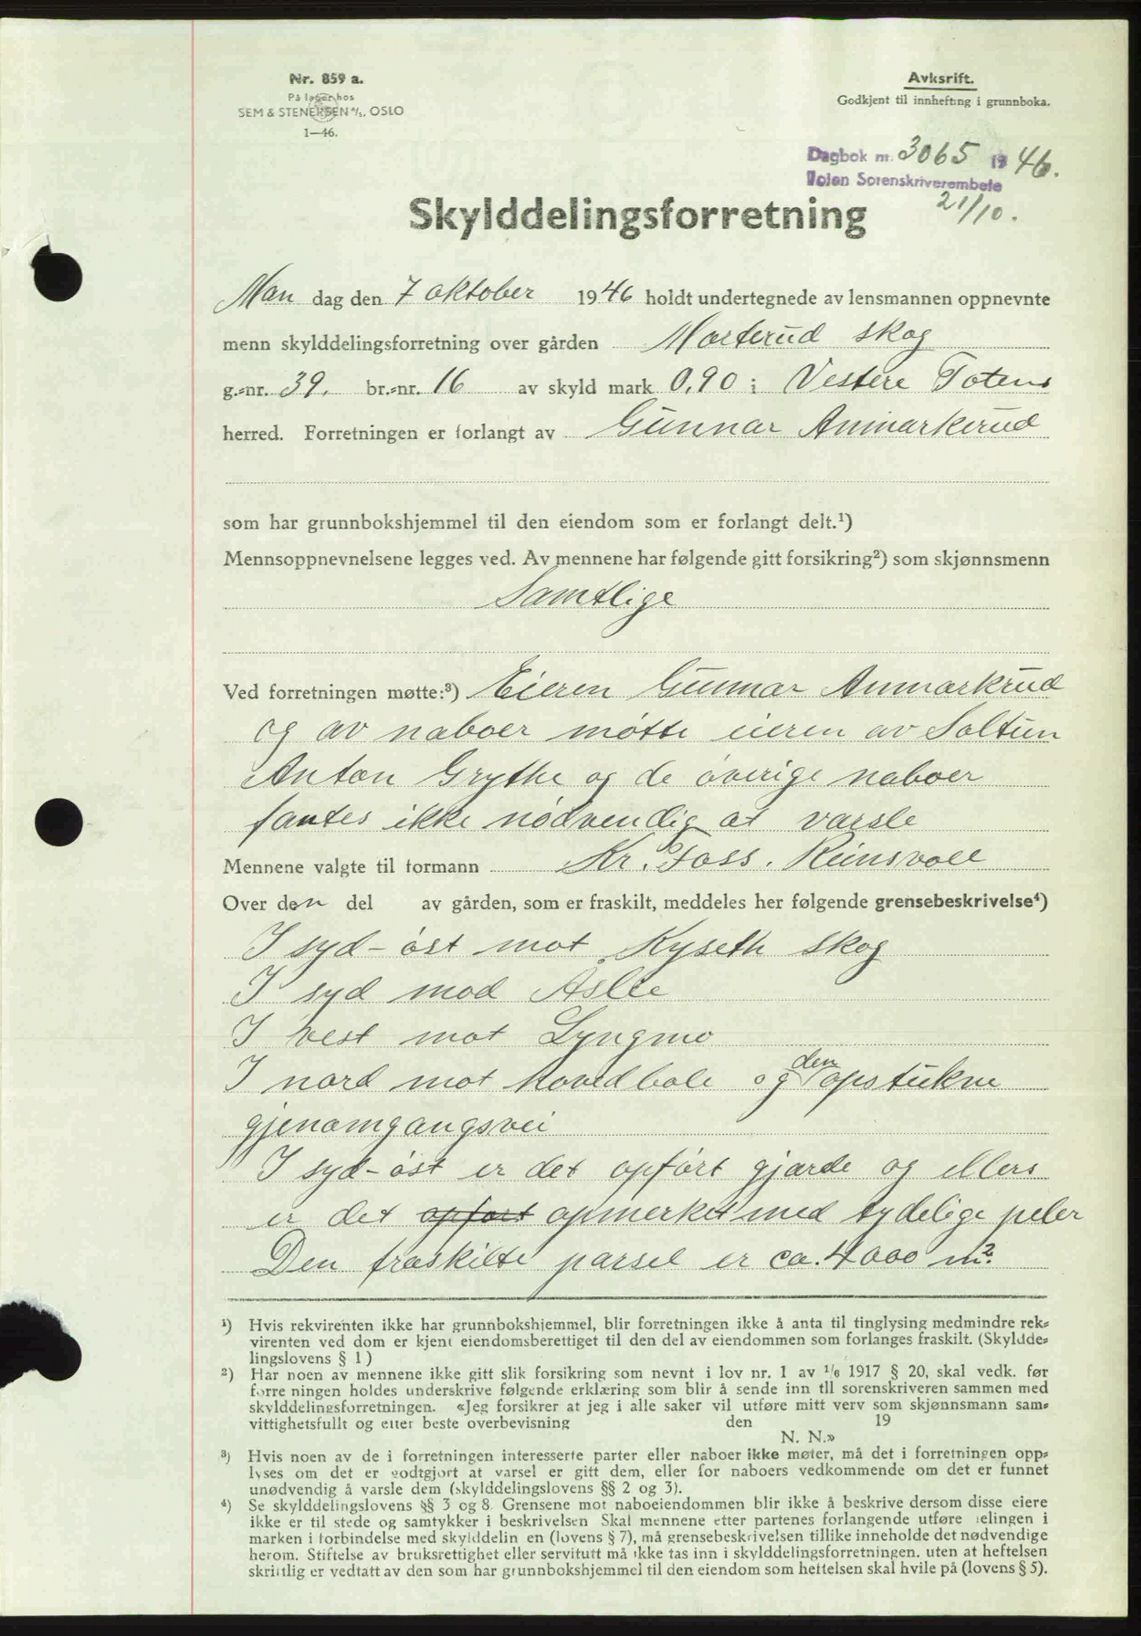 Nr. 859 a.
På lager hos
SEM & STENERSEN A/S, OSLO
1—46.
Avksrift.
Godkjent til innhefting i grunnboka.
Dagbok nr. 3065 1946.
Toten Sorenskriverembete
21/10.
Skylddelingsforretning
Man dag den 7 oktober 1946 holdt undertegnede av lensmannen oppnevnte
menn skylddelingsforretning over gården Morterud skog
g.-nr. 39. br.-nr. 16 av skyld mark 0,90 i Vestre Totens
herred. Forretningen er forlangt av Gunnar Anmarkrud
som har grunnbokshjemmel til den eiendom som er forlangt delt.¹)
Mennsoppnevnelsene legges ved. Av mennene har følgende gitt forsikring²) som skjønnsmenn
Samtlige
Ved forretningen møtte:³) Eieren Gunnar Anmarkrud
og av naboer møtte eieren av Soltun
Anton Grythe og de øverige naboer
fantes ikke nødvendig at varsle
Mennene valgte til formann Kr. Foss. Reinsvoll
Over den del av gården, som er fraskilt, meddeles her følgende grensebeskrivelse⁴)
I syd-øst mot Kyseth skog
I syd mod Åslee
I vest mot Lyngmo
I nord mot hovedbøle og den opstukne
gjenomgangsvei
I syd-øst er det opført gjærde og ellers
er det opført opmerket med tydelige peler
Den fraskilte parsel er ca. 4000 m².
¹) Hvis rekvirenten ikke har grunnbokshjemmel, blir forretningen ikke å anta til tinglysing medmindre rek-
virenten ved dom er kjent eiendomsberettiget til den del av eiendommen som forlanges fraskilt. (Skyldde-
lingslovens § 1)
²) Har noen av mennene ikke gitt slik forsikring som nevnt i lov nr. 1 av 1/6 1917 § 20, skal vedk. før
forretningen holdes underskrive følgende erklæring som blir å sende inn til sorenskriveren sammen med
skylddelingsforretningen. «Jeg forsikrer at jeg i alle saker vil utføre mitt verv som skjønnsmann sam-
vittighetsfullt og etter beste overbevisning den 19
N. N.»
³) Hvis noen av de i forretningen interesserte parter eller naboer ikke møter, må det i forretningen opp-
lyses om det er godtgjort at varsel er gitt dem, eller for naboers vedkommende om det er funnet
unødvendig å varsle dem (skylddelingslovens §§ 2 og 3).
⁴) Se skylddelingslovens §§ 3 og 8. Grensene mot naboeiendommen blir ikke å beskrive dersom disse eiere
ikke er til stede og samtykker i beskrivelsen Skal mennene etter partenes forlangende utføre delingen i
marken i forbindelse med skylddelingen (lovens § 7), må grensebeskrivelsen tillike inneholde det nødvendige
herom. Stiftelse av bruksrettighet eller servitutt må ikke tas inn i skylddelingsforretningen, uten at heftelsen
skriftlig er vedtatt av den som har grunnbokshjemmel til den eiendom som heftelsen skal hvile på (lovens § 5).